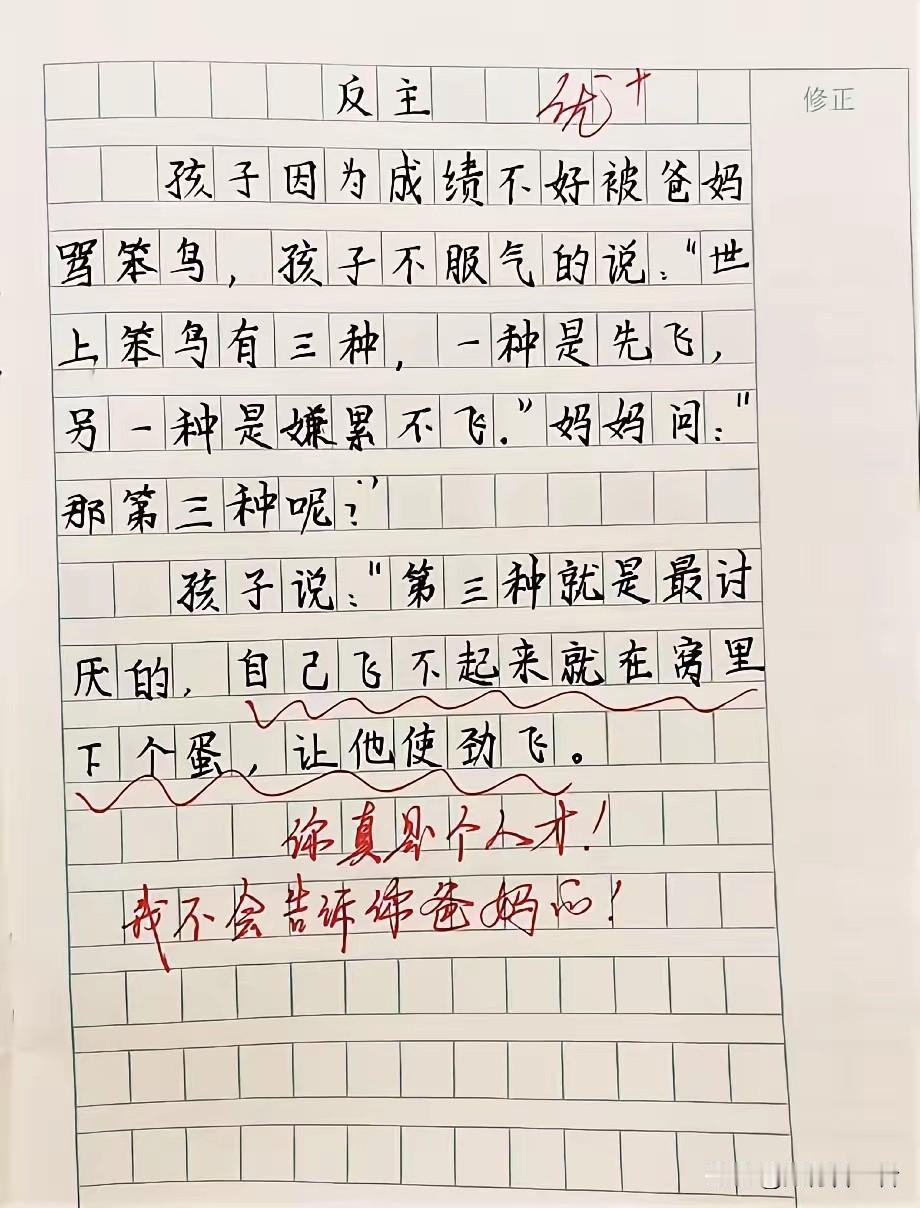 反主 优+
修正
孩子因为成绩不好被爸妈
骂笨鸟，孩子不服气的说："世
上笨鸟有三种，一种是先飞，
另一种是嫌累不飞."妈妈问："
那第三种呢？"
孩子说："第三种就是最讨
厌的，自己飞不起来就在窝里
下个蛋，让他使劲飞。
你真是个人才！
我不会告诉你爸妈的！